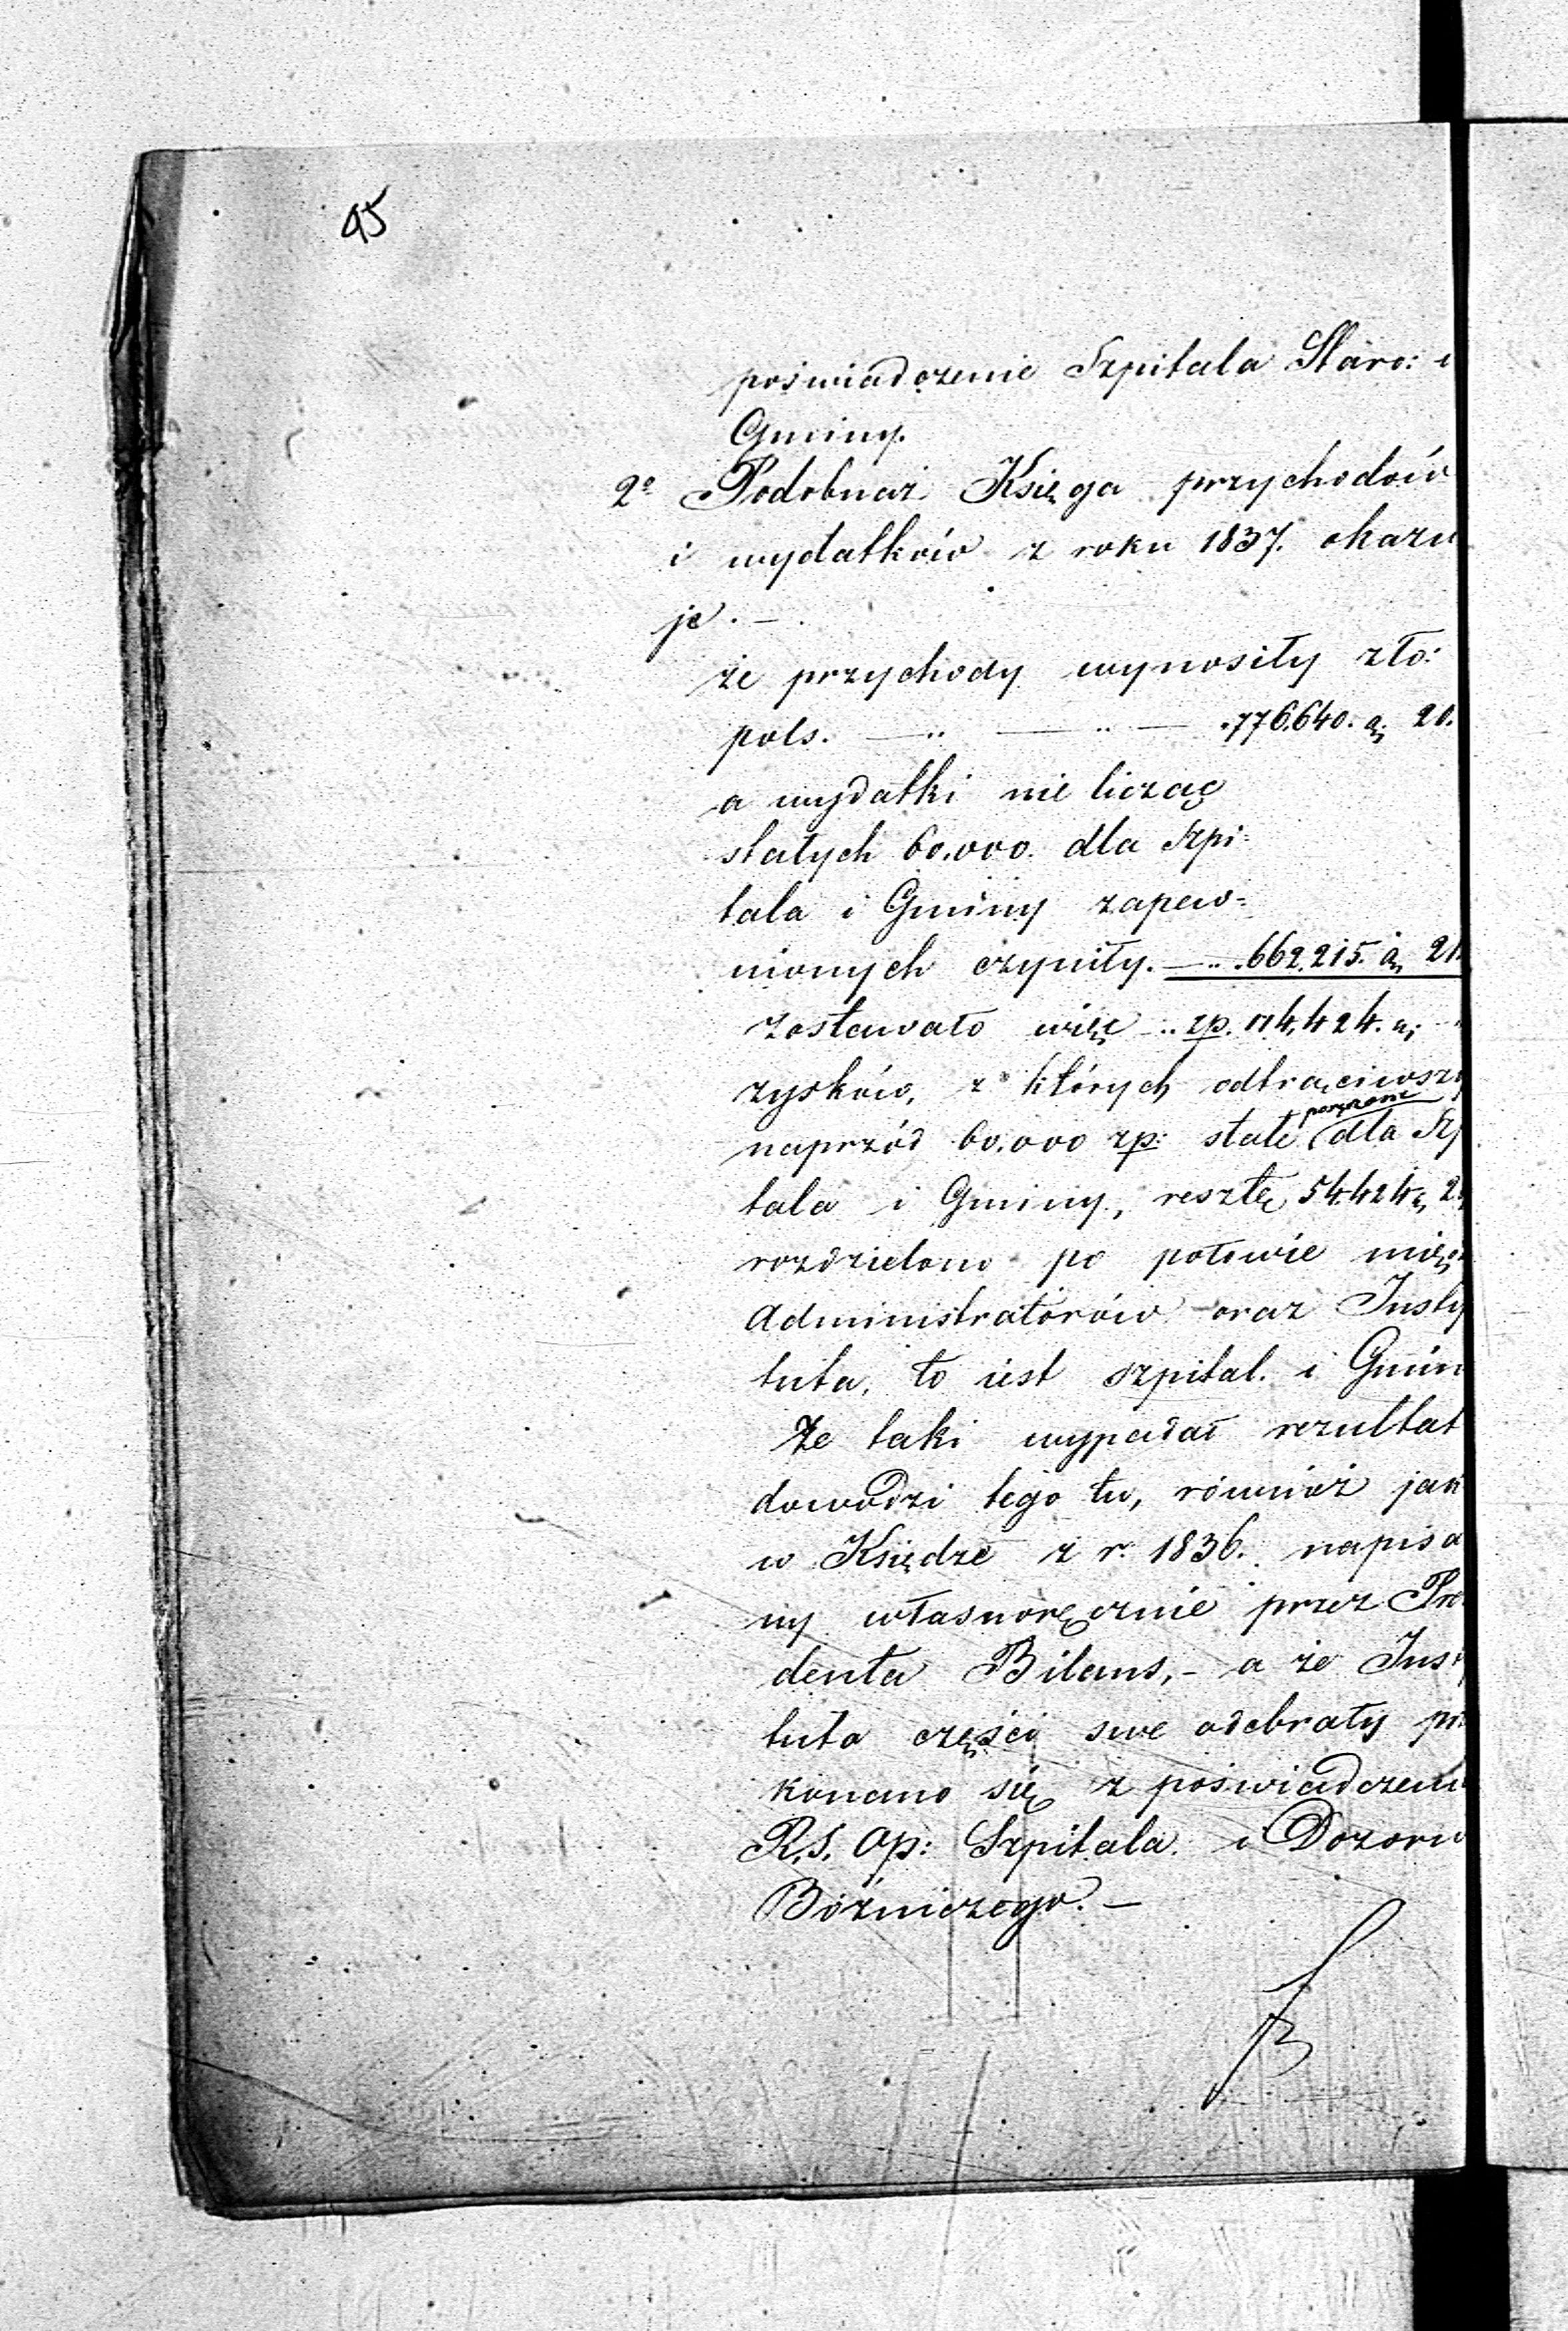 95
poświadczenie Szpitala Staro: i
Gminy.
2o Podobnaż Księga przychodów
i wydatków z roku 1837. okazu
je. —
że przychody wynosiły zło:
pols. — „ — „ — 776.640. g. 20.
a wydatki nie licząc
stałych 60.000. dla Szpi=
tala i Gminy zapew=
nionych czyniły. — „ 662.215. g. 21.
zostawało więc „ zp. 114,424. g.
zysków, z których odtrąciwszy
naprzód 60.000 zp: stałe dla Szp
tala i Gminy, resztę 54.424 g. 2
rozdzielono po połowie międ
Administratorów oraz Insty
tuta, to iest szpital. i Gmin
Że taki wypadał rezultat
dowodzi tego tu, również jak
w Księdze z r. 1836. napisa
ny własnoręcznie przez Pre
denta Bilans, - a że Inst
tuta części swe odebrały prze
konano się z poświadczeni
R. S. Op: Szpitala i Dozoru
Bóżniczego. —